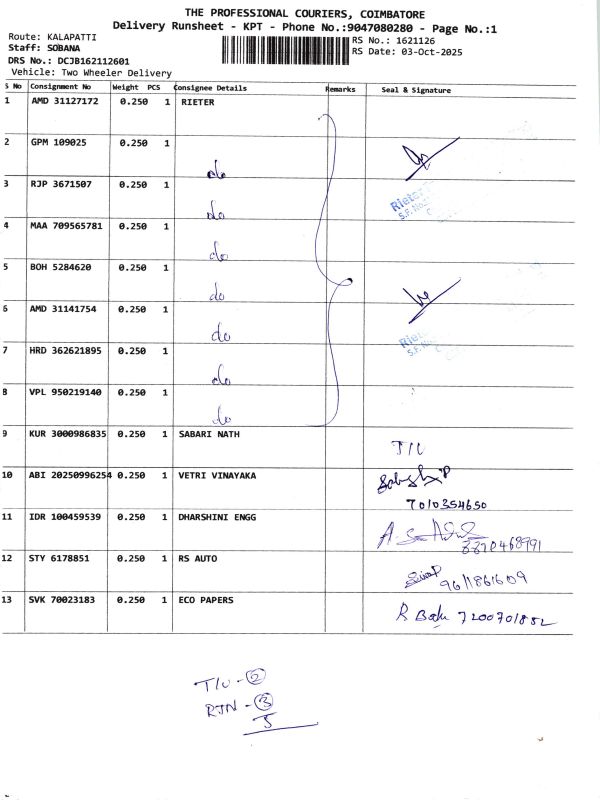 THE PROFESSIONAL COURIERS, COIMBATORE
Delivery Runsheet - KPT - Phone No.:9047080280 - Page No.:1
Route: KALAPATTI
RS No.: 1621126
Staff: SOBANA
RS Date: 03-Oct-2025
DRS No.: DCJB162112601
Vehicle: Two Wheeler Delivery
S No Consignment No Weight PCS Consignee Details Remarks Seal & Signature
1 AMD 31127172 0.250 1 RIETER
2 GPM 109025 0.250 1
do
3 RJP 3671507 0.250 1
Rieter
do
S.F. No.
4 MAA 709565781 0.250 1
do
5 BOH 5284620 0.250 1
do
6 AMD 31141754 0.250 1
do
Rieter
7 HRD 362621895 0.250 1
S.F. No.
do
8 VPL 950219140 0.250 1
do
9 KUR 3000986835 0.250 1 SABARI NATH
T/U
10 ABI 20250996254 0.250 1 VETRI VINAYAKA
7010354650
11 IDR 100459539 0.250 1 DHARSHINI ENGG
12 STY 6178851 0.250 1 RS AUTO
9611861609
13 SVK 70023183 0.250 1 ECO PAPERS
R Babu 7200701882
T/U - 2
RTN - 3
5